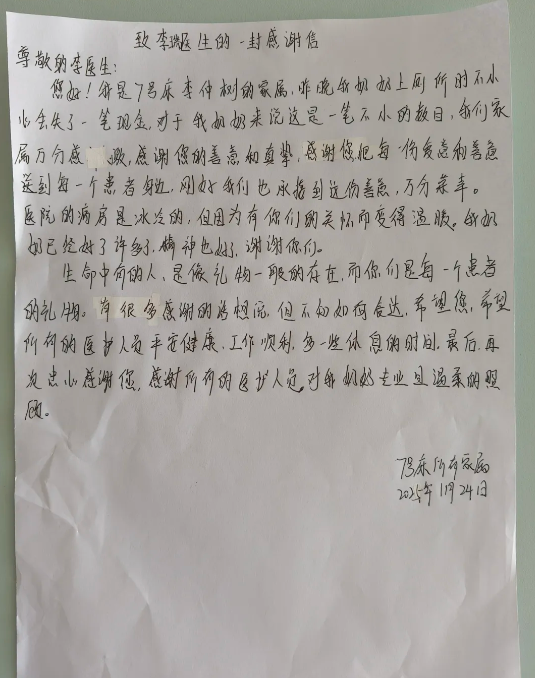 致李瑞医生的一封感谢信
尊敬的李医生:
您好!我是7号床李仲树的家属,昨晚我奶奶上厕所时不小
心丢失了一笔现金,对于我奶奶来说这是一笔不小的数目,我们家
属万分感激,感谢您的善意和真挚,感谢您把每一份爱意和善意
送到每一个患者身边,刚好我们也承接到这份善意,万分荣幸。
医院的病房是冰冷的,但因为有你们的关怀而变得温暖。我奶
奶已经好了许多了,精神也好,谢谢你们。
生命中有的人,是像礼物一般的存在,而你们是每一个患者
的礼物。有很多感谢的话想说,但不知如何表达,希望您,希望
所有的医护人员平安健康,工作顺利,多一些休息的时间,最后,再
次忠心感谢您,感谢所有的医护人员,对我奶奶专业且温柔的照
顾。
7号床所有家属
2025年11月24日